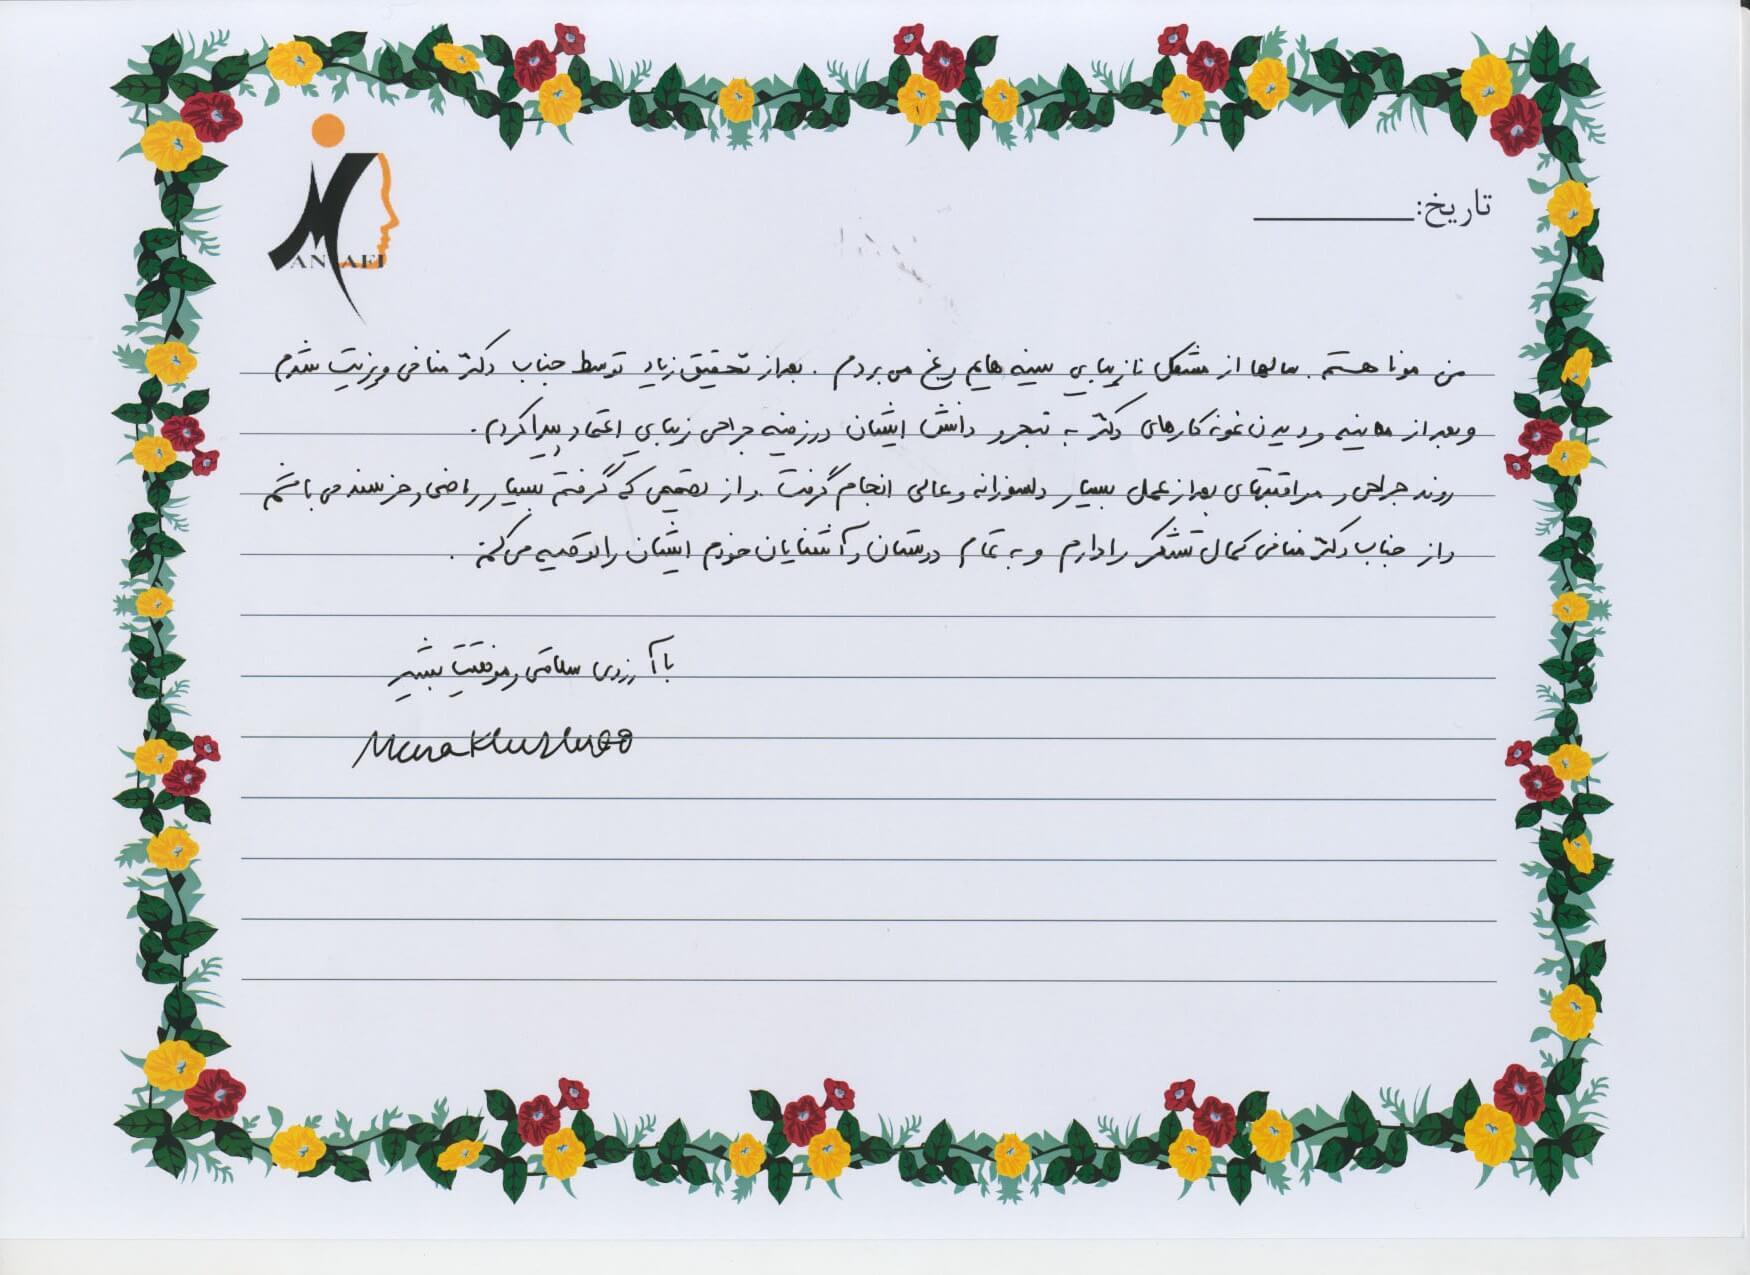 تاریخ:
MANAFI
من مونا هستم. سالها از مشکل نازیبایی سینه هایم رنج می بردم. بعد از تحقیق زیاد توسط جناب دکتر منافی ویزیت شدم
و بعد از معاینه و دیدن نمونه کارهای دکتر به تبحر و دانش ایشان در زمینه جراحی زیبایی اعتماد پیدا کردم.
روند جراحی و مراقبتهای بعد از عمل بسیار دلسوزانه و عالی انجام گرفت. و از تصمیمی که گرفتم بسیار راضی و خرسند می باشم
و از جناب دکتر منافی کمال تشکر را دارم و به تمام دوستان و آشنایان خودم ایشان را توصیه می کنم.
با آرزوی سلامتی و موفقیت بیشتر
Mona